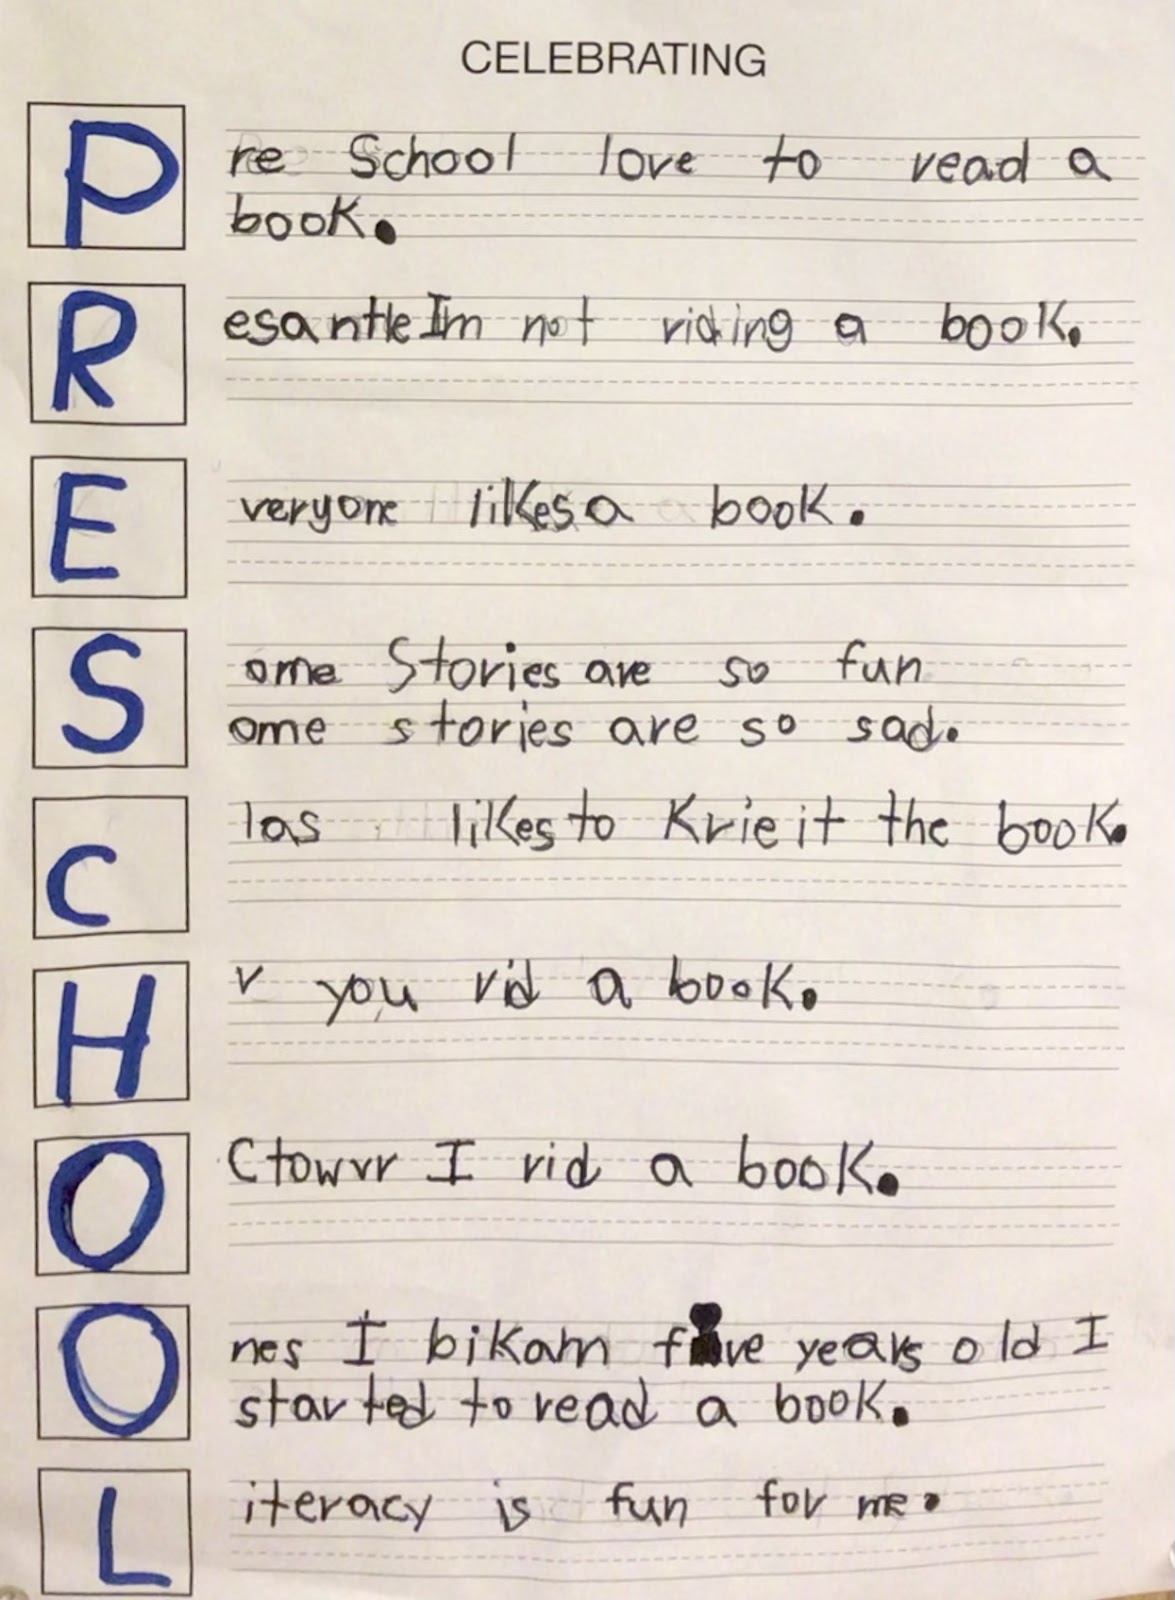 CELEBRATING
P re School love to read a
book.
R esantle Im not riding a book.
E veryone likes a book.
S ome Stories are so fun
ome stories are so sad.
C las likes to Krie it the book.
H v you rid a book.
O Ctowvr I rid a book.
O nes I bikam five years old I
started to read a book.
L iteracy is fun for me.